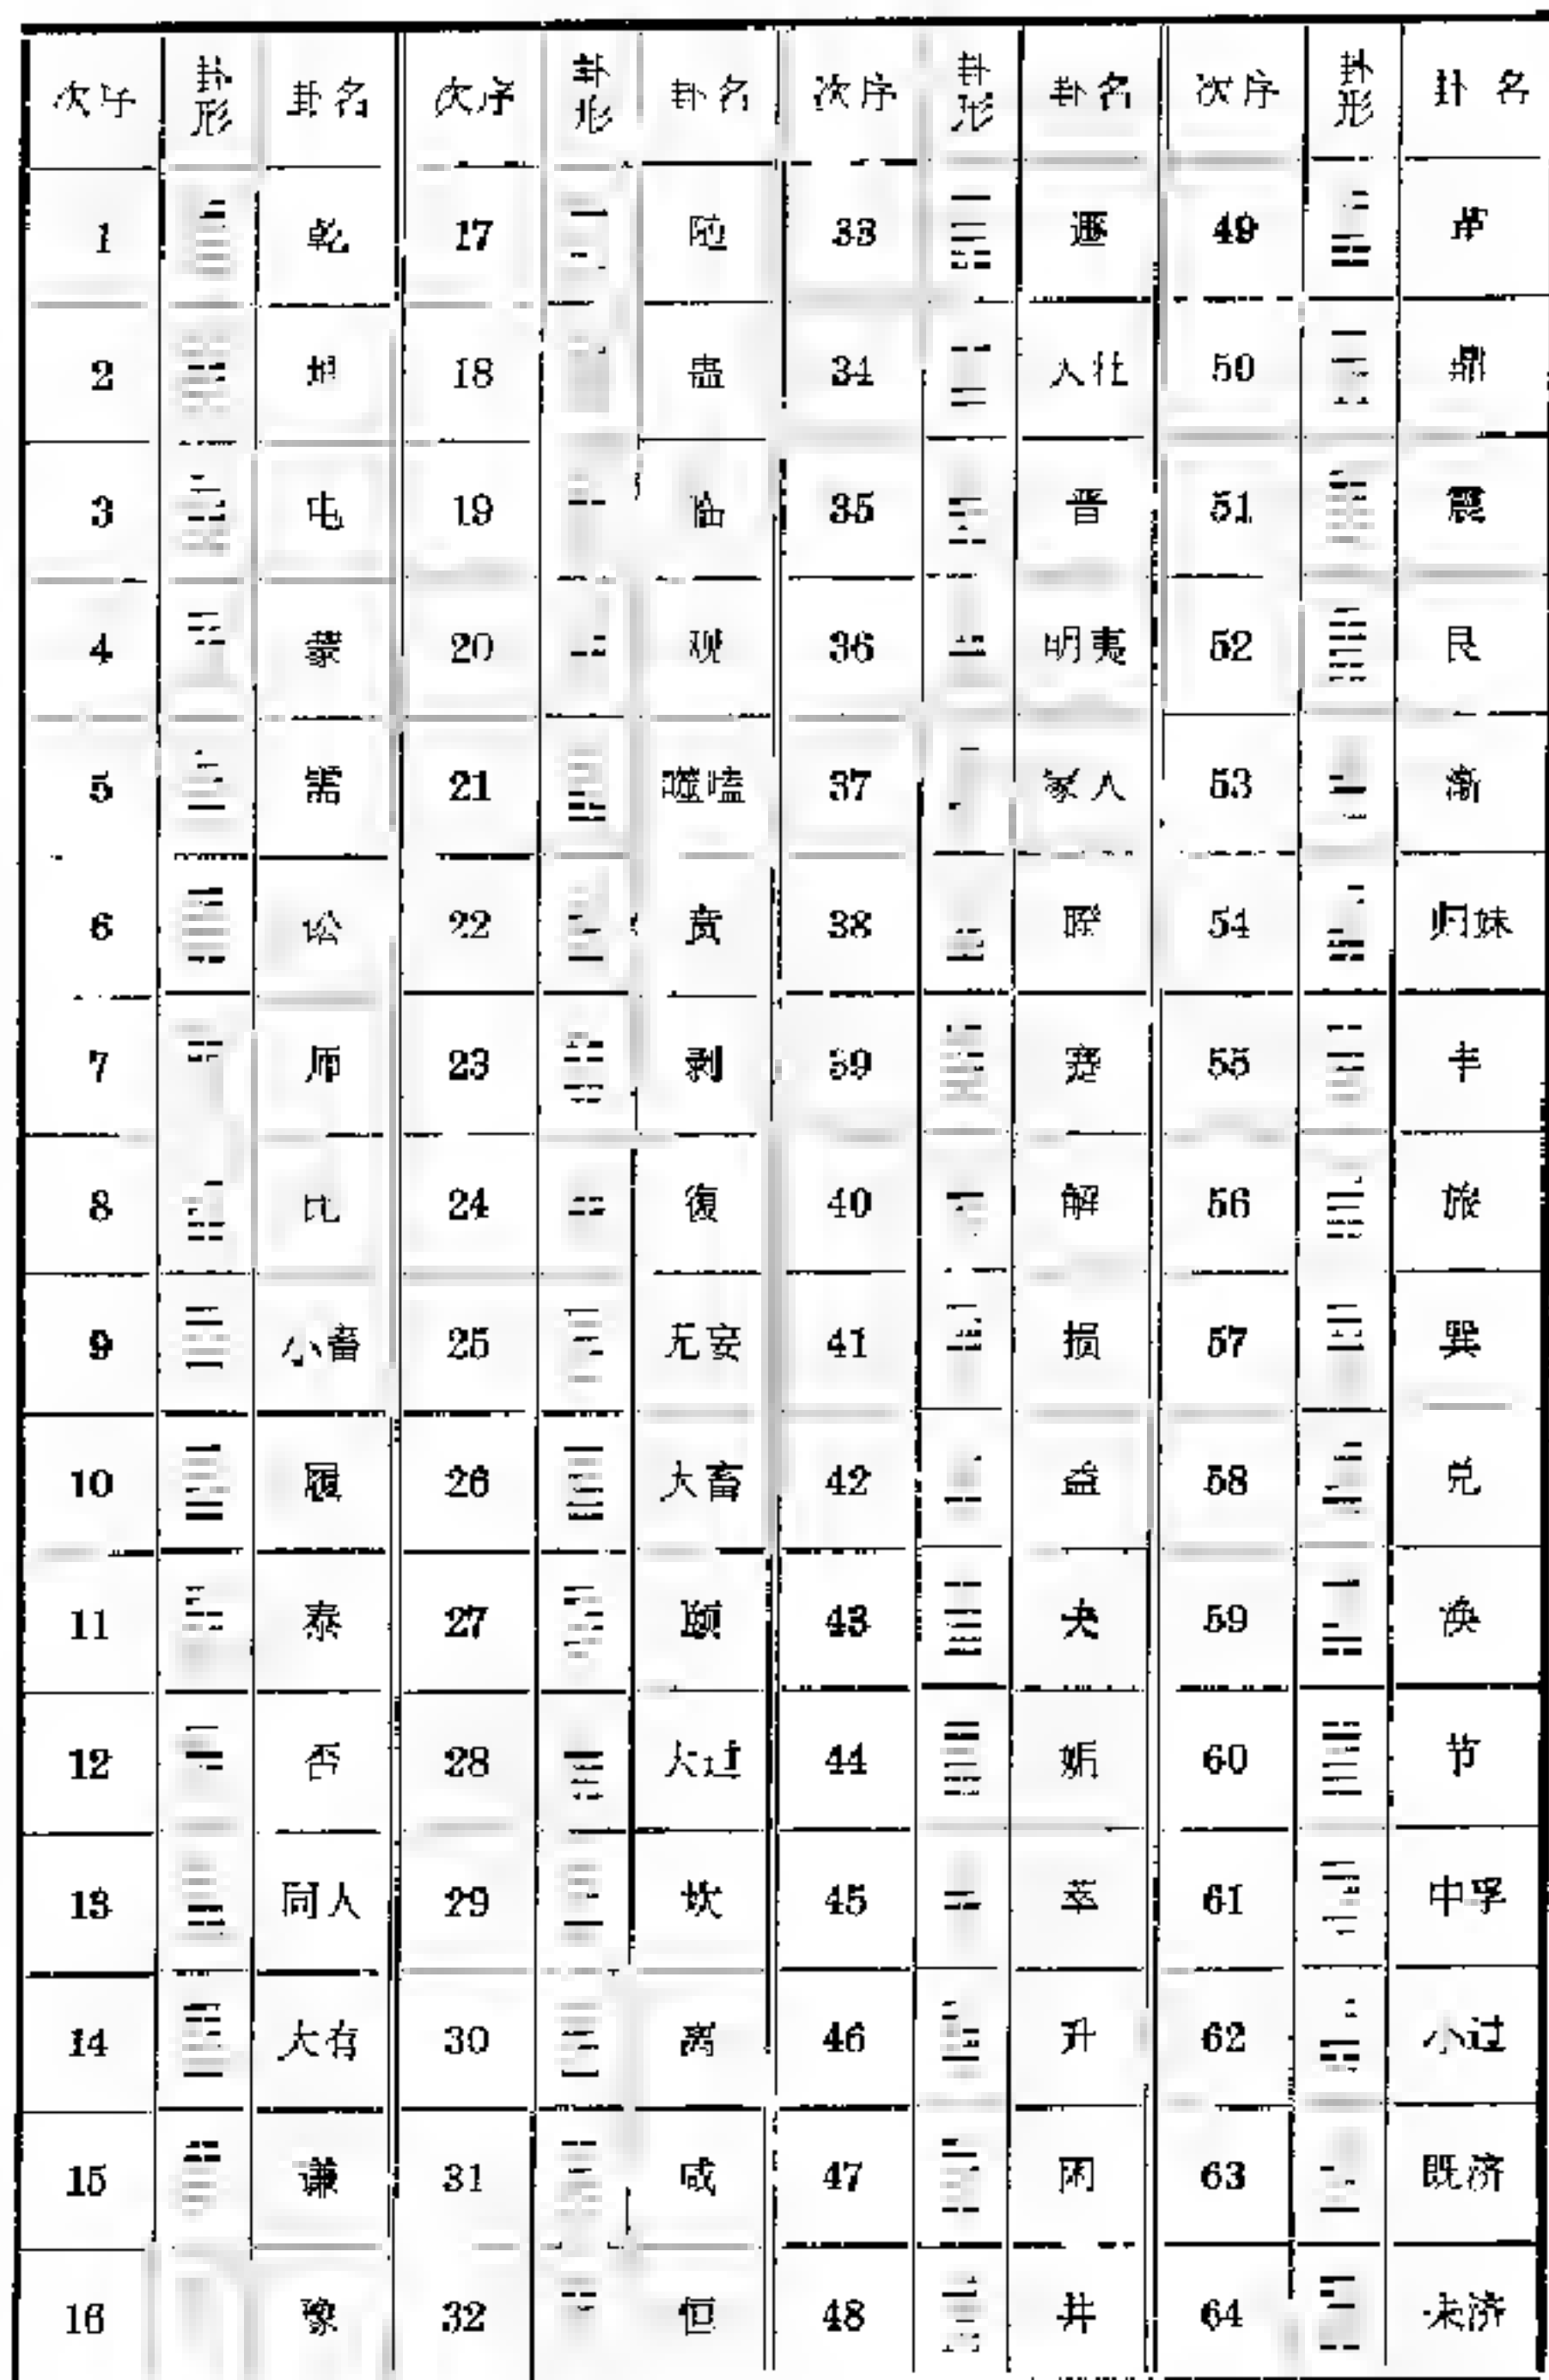 次序 卦形 卦名 次序 卦形 卦名 次序 卦形 卦名 次序 卦形 卦名
1 乾 17 随 33 遯 49 革
2 坤 18 蛊 34 大壮 50 鼎
3 屯 19 临 35 晋 51 震
4 蒙 20 观 36 明夷 52 艮
5 需 21 噬嗑 37 家人 53 渐
6 讼 22 贲 38 睽 54 归妹
7 师 23 剥 39 蹇 55 丰
8 比 24 復 40 解 56 旅
9 小畜 25 无妄 41 损 57 巽
10 履 26 大畜 42 益 58 兑
11 泰 27 颐 43 夬 59 涣
12 否 28 大过 44 姤 60 节
13 同人 29 坎 45 萃 61 中孚
14 大有 30 离 46 升 62 小过
15 谦 31 咸 47 困 63 既济
16 豫 32 恒 48 井 64 未济